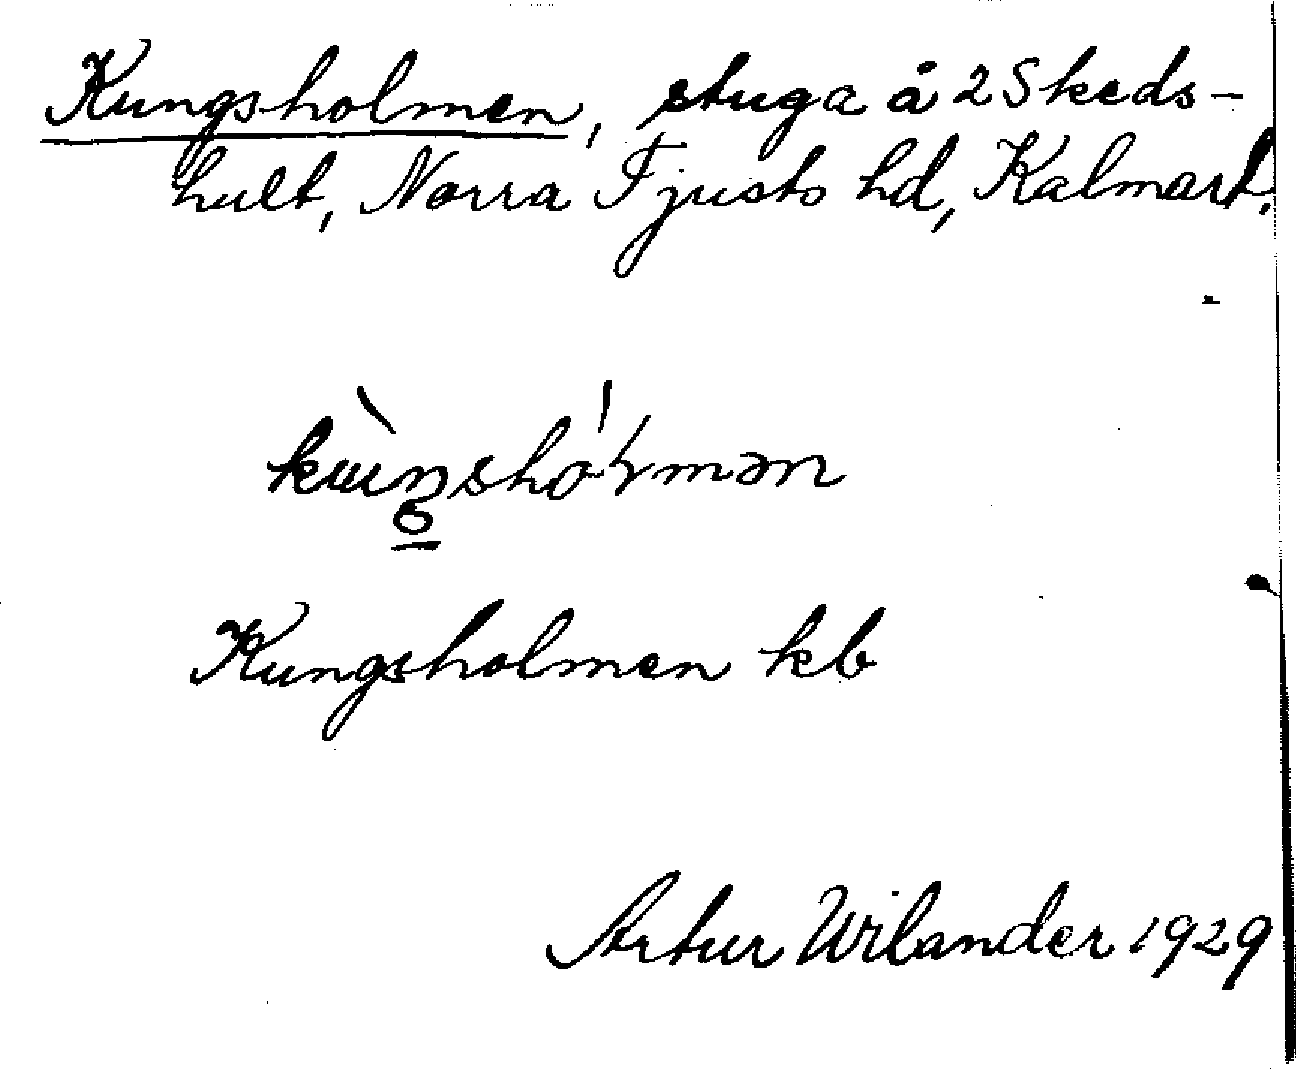 Kungsholmen, stuga å 2 Skeds-
hult, Norra Tjusts hd, Kalmar l.
Kungsholmen kb
Artur Wilander 1929